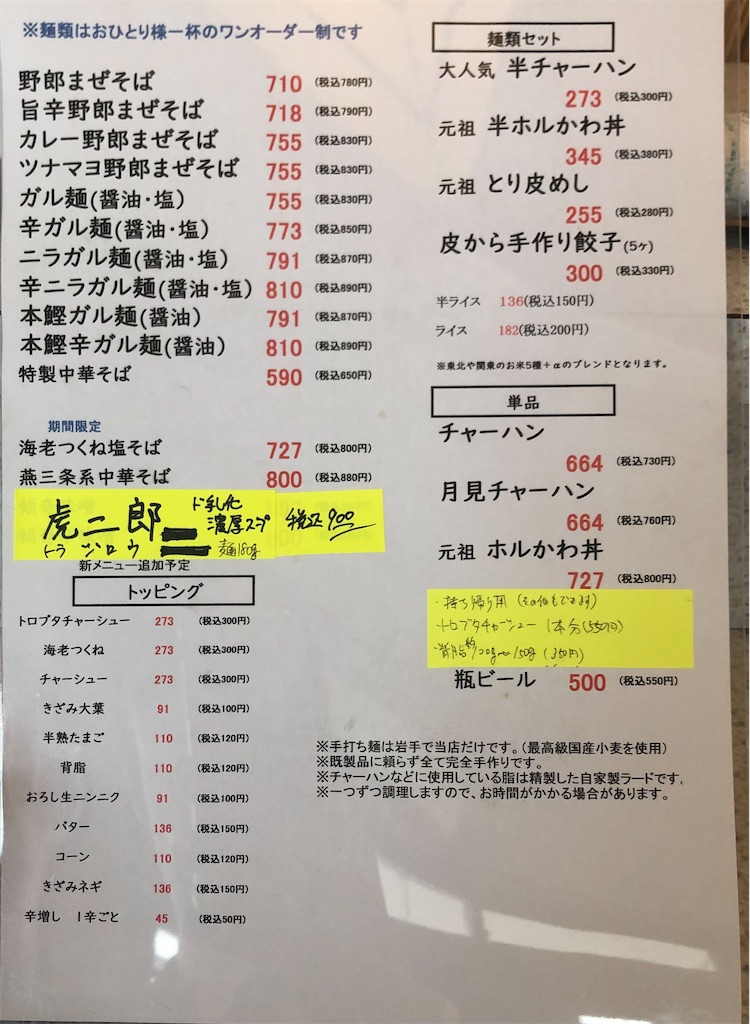 ※麺類はおひとり様一杯のワンオーダー制です
野郎まぜそば 710 (税込780円)
旨辛野郎まぜそば 718 (税込790円)
カレー野郎まぜそば 755 (税込830円)
ツナマヨ野郎まぜそば 755 (税込830円)
ガル麺(醤油・塩) 755 (税込830円)
辛ガル麺(醤油・塩) 773 (税込850円)
ニラガル麺(醤油・塩) 791 (税込870円)
辛ニラガル麺(醤油・塩) 810 (税込890円)
本鰹ガル麺(醤油) 791 (税込870円)
本鰹辛ガル麺(醤油) 810 (税込890円)
特製中華そば 590 (税込650円)
期間限定
海老つくね塩そば 727 (税込800円)
燕三条系中華そば 800 (税込880円)
虎二郎 ド乳化
濃厚スープ 税込900
トラ ジロウ 麺180g
新メニュー追加予定
トッピング
トロブタチャーシュー 273 (税込300円)
海老つくね 273 (税込300円)
チャーシュー 273 (税込300円)
きざみ大葉 91 (税込100円)
半熟たまご 110 (税込120円)
背脂 110 (税込120円)
おろし生ニンニク 91 (税込100円)
バター 136 (税込150円)
コーン 110 (税込120円)
きざみネギ 136 (税込150円)
辛増し 1辛ごと 45 (税込50円)
麺類セット
大人気 半チャーハン
273 (税込300円)
元祖 半ホルかわ丼
345 (税込380円)
元祖 とり皮めし
255 (税込280円)
皮から手作り餃子(5ヶ)
300 (税込330円)
半ライス 136(税込150円)
ライス 182(税込200円)
※東北や関東のお米5種+αのブレンドとなります。
単品
チャーハン
664 (税込730円)
月見チャーハン
664 (税込760円)
元祖 ホルかわ丼
727 (税込800円)
・持ち帰り用 (その他もできます)
・トロブタチャーシュー 1本分(550円)
・背脂約100g〜150g (350円)
瓶ビール 500 (税込550円)
※手打ち麺は岩手で当店だけです。(最高級国産小麦を使用)
※既製品に頼らず全て完全手作りです。
※チャーハンなどに使用している脂は精製した自家製ラードです。
※一つずつ調理しますので、お時間がかかる場合があります。